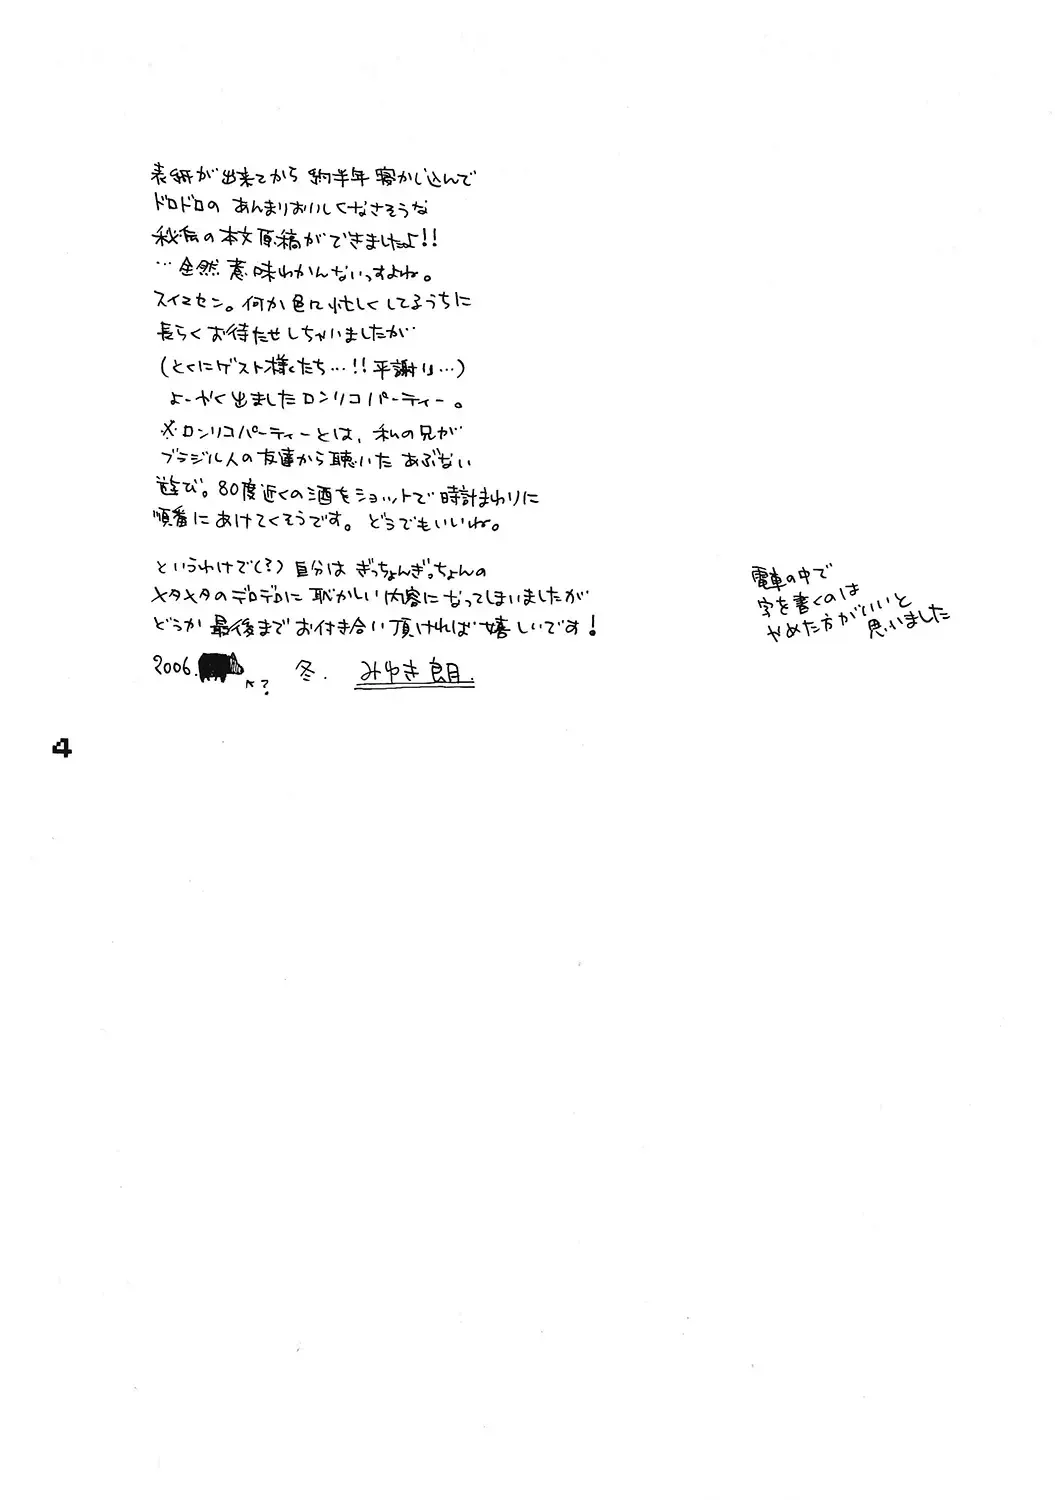 表紙が出来てから 約半年 寝かし込んで
ドロドロの あんまりおいしくなさそうな
秘伝の本文原稿ができましたよ!!
…全然意味わかんないっすよね。
スイマセン。何か色々忙しくしてるうちに
長らくお待たせしちゃいましたが
(とくにゲスト様くたち…!!平謝り…)
よーやく出ましたロンリコパーティー。
※ロンリコパーティーとは、私の兄が
ブラジル人の友達から聴いた あぶない
遊び。80度近くの酒をショットで時計まわりに
順番にあけてくそうです。どうでもいいね。
というわけで(?)自分は ぎっちょんぎっちょんの
メタメタのデロデロに 恥かしい内容になってしまいましたが
どうか最後までお付き合い頂ければ嬉しいです!
2006. ? 冬. みゆき朗.
電車の中で
字を書くのは
やめた方がいいと
思いました
4